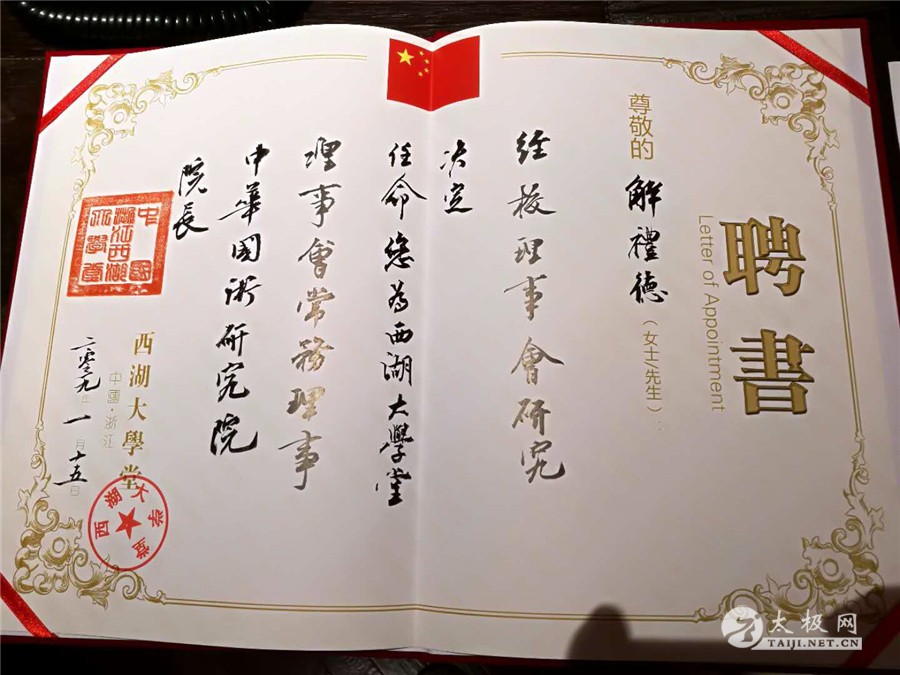 聘書
Letter of Appointment
尊敬的 解禮德（女士/先生）：
经校理事會研究
决定
任命您為西湖大學堂
理事會常務理事
中華國術研究院
院長
西湖大學堂
中國·浙江
二零一九年一月十五日
西湖大学堂
太极网
TAIJI.NET.CN